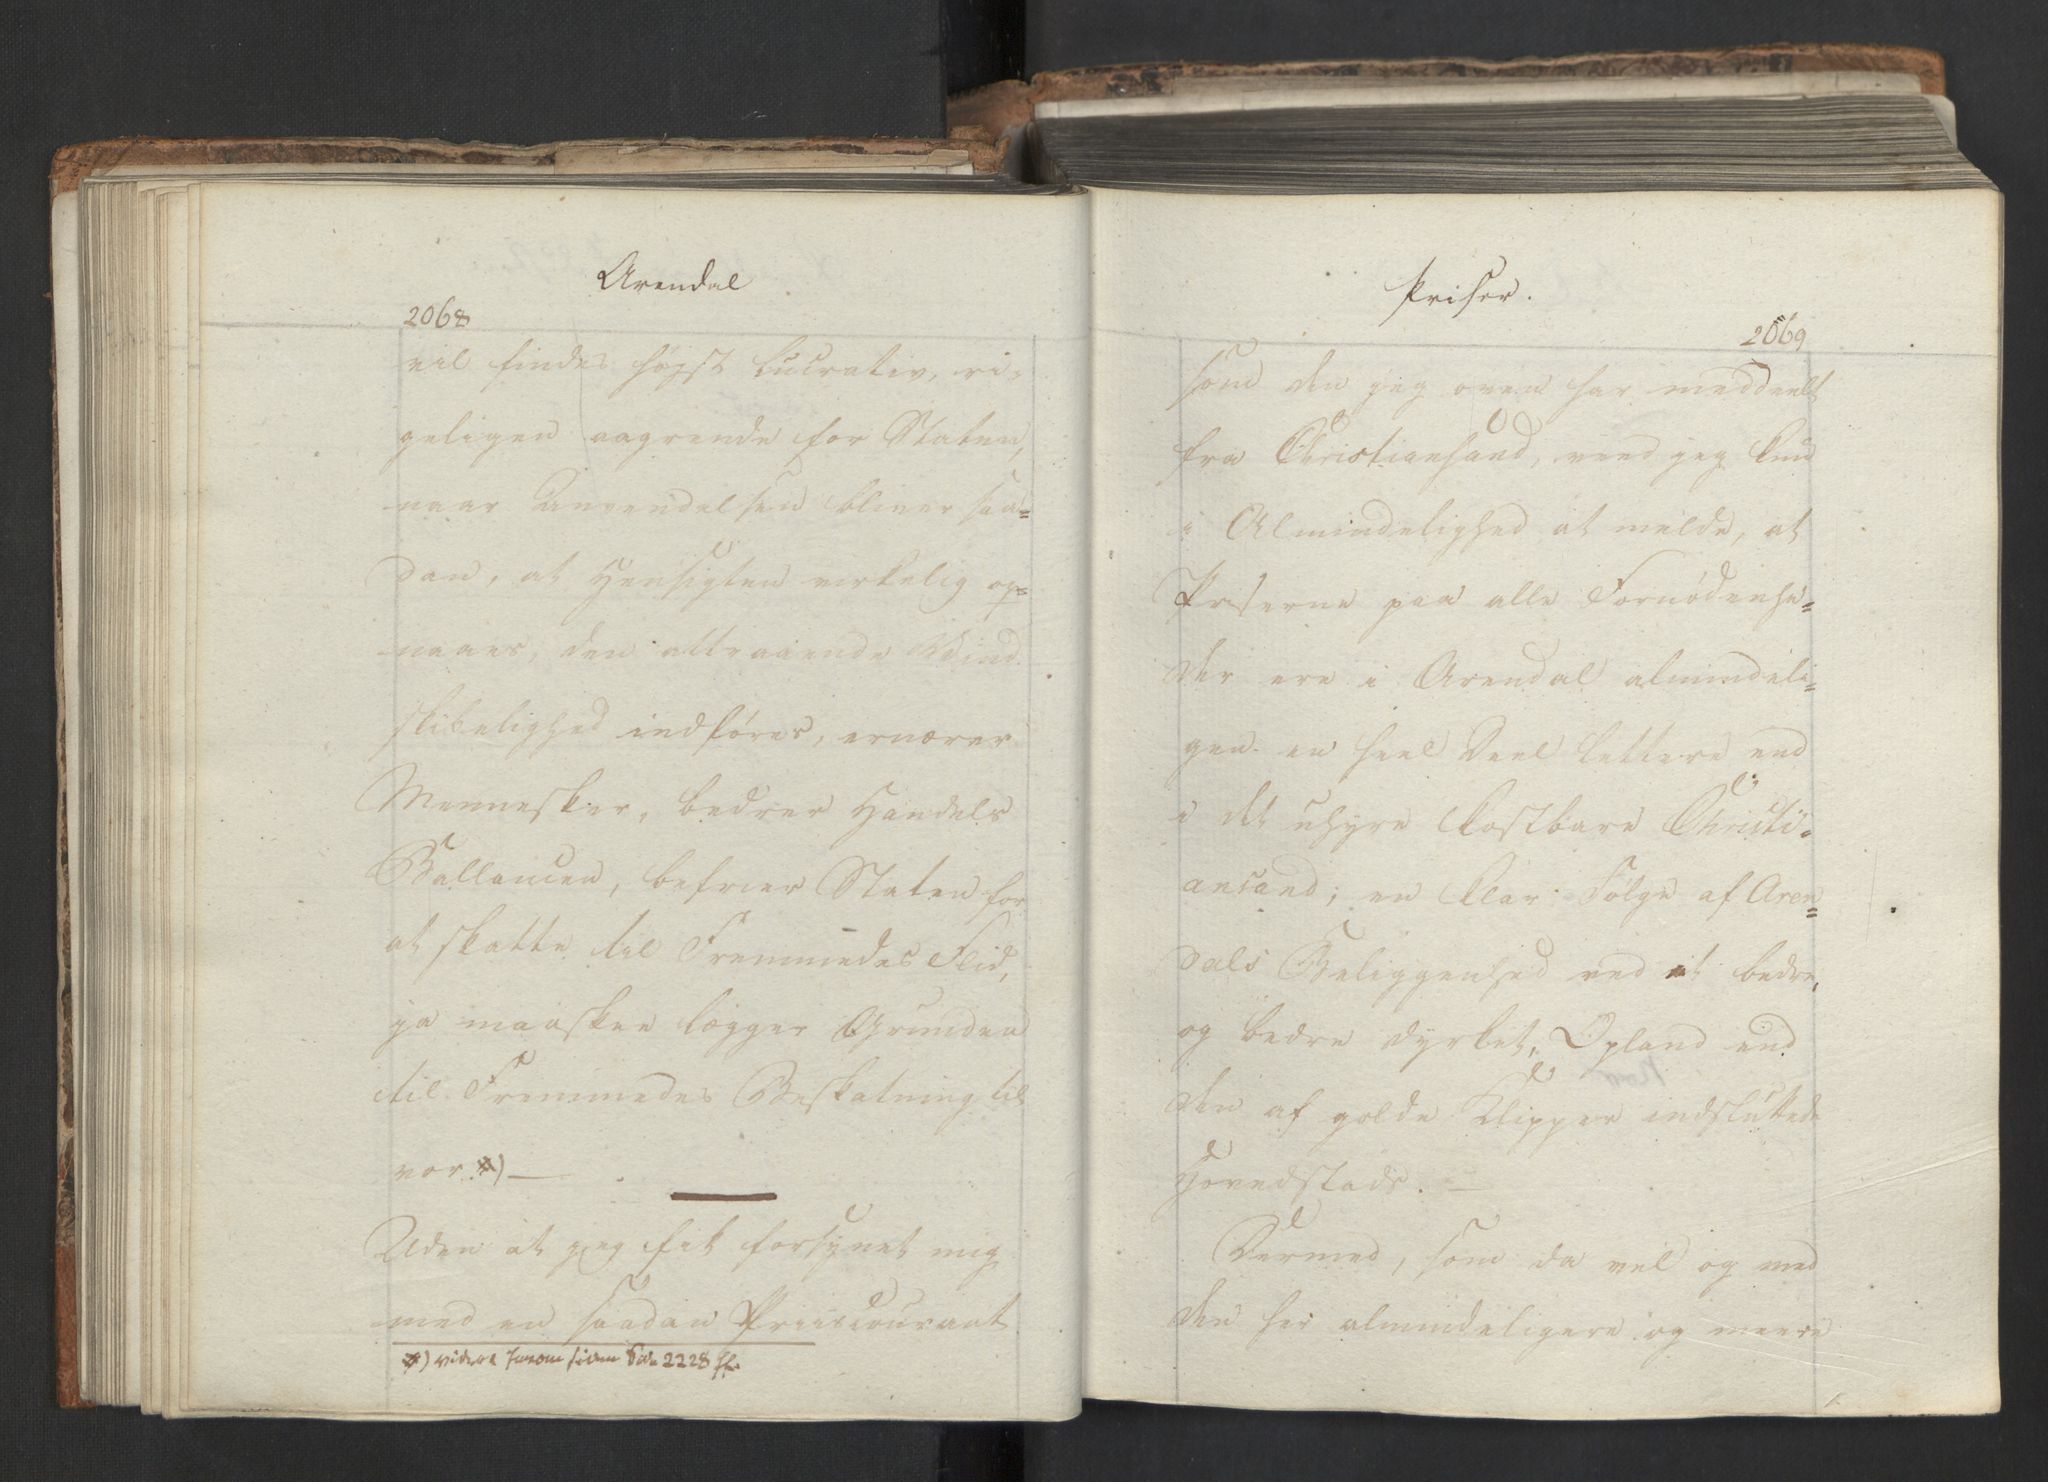 Arendal
2068
vil findes højst lucrativ, ri-
geligen aagrende for Staten,
naar Anvendelsen bliver saa-
dan, at Hensigten virkelig op-
naaes, den attraaende Vind
skibelighed indføres, ernærer
Mennesker, bedrer Handels
Ballancen, befrier Staten for
at skatte til Fremmedes Flid,
ja maaskee lægger Grunden
til Fremmedes Beskatning til
vor. *) —
Uden at jeg fik forsynet mig
med en saadan Priiscourant
*) videre herom siden Side 2228 ff.
Priser.
2069
som den jeg oven har meddeelt
fra Christiansand, veed jeg kun
i Almindelighed at melde, at
Priserne paa alle Fornødenhe-
der ere i Arendal almindeli-
gen en heel Deel lettere end
i det uhyre kostbare Christi-
ansand; en klar Følge af Aren-
dals Beliggenhed ved et bedre,
og bedre dyrket, Opland end
den af golde Klipper indsluttede
Hovedstads. —
Dermed, som da vel og med
den her almindeligere og meere